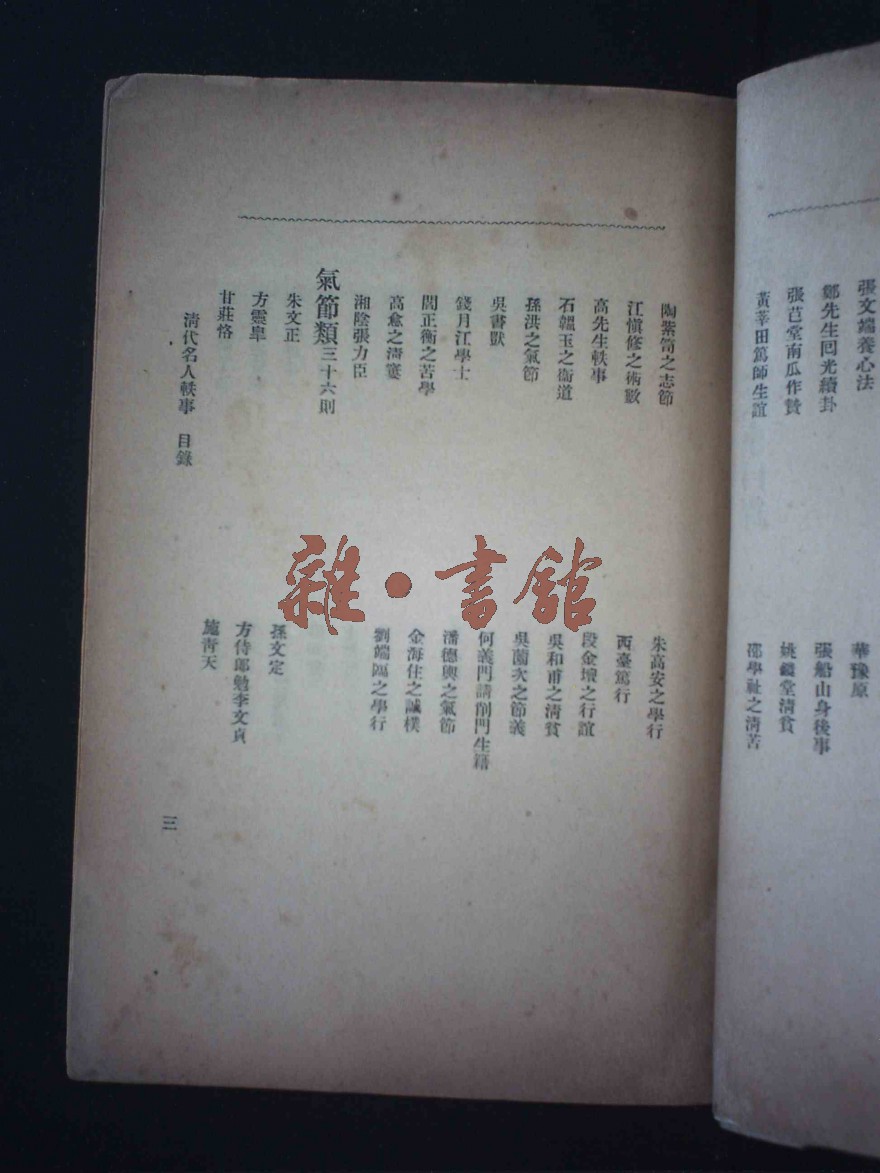 張文端養心法
鄭先生回光續卦
華豫原
張芑堂南瓜作贄
張船山身後事
黃莘田篤師生誼
姚鏡堂清貧
邵學祉之清苦
陶紫笥之志節
朱高安之學行
江愼修之術數
西臺篤行
高先生軼事
段金壇之行誼
石韞玉之衞道
吳和甫之清貧
孫洪之氣節
吳薗次之節義
吳書獃
何義門請削門生籍
錢月江學士
潘德輿之氣節
閻正衡之苦學
金海住之誠樸
高愈之清寠
劉端臨之學行
湘陰張力臣
氣節類三十六則
朱文正
孫文定
方靈皐
方侍郎勉李文貞
甘莊恪
施青天
清代名人軼事 目錄
三
雜·書館